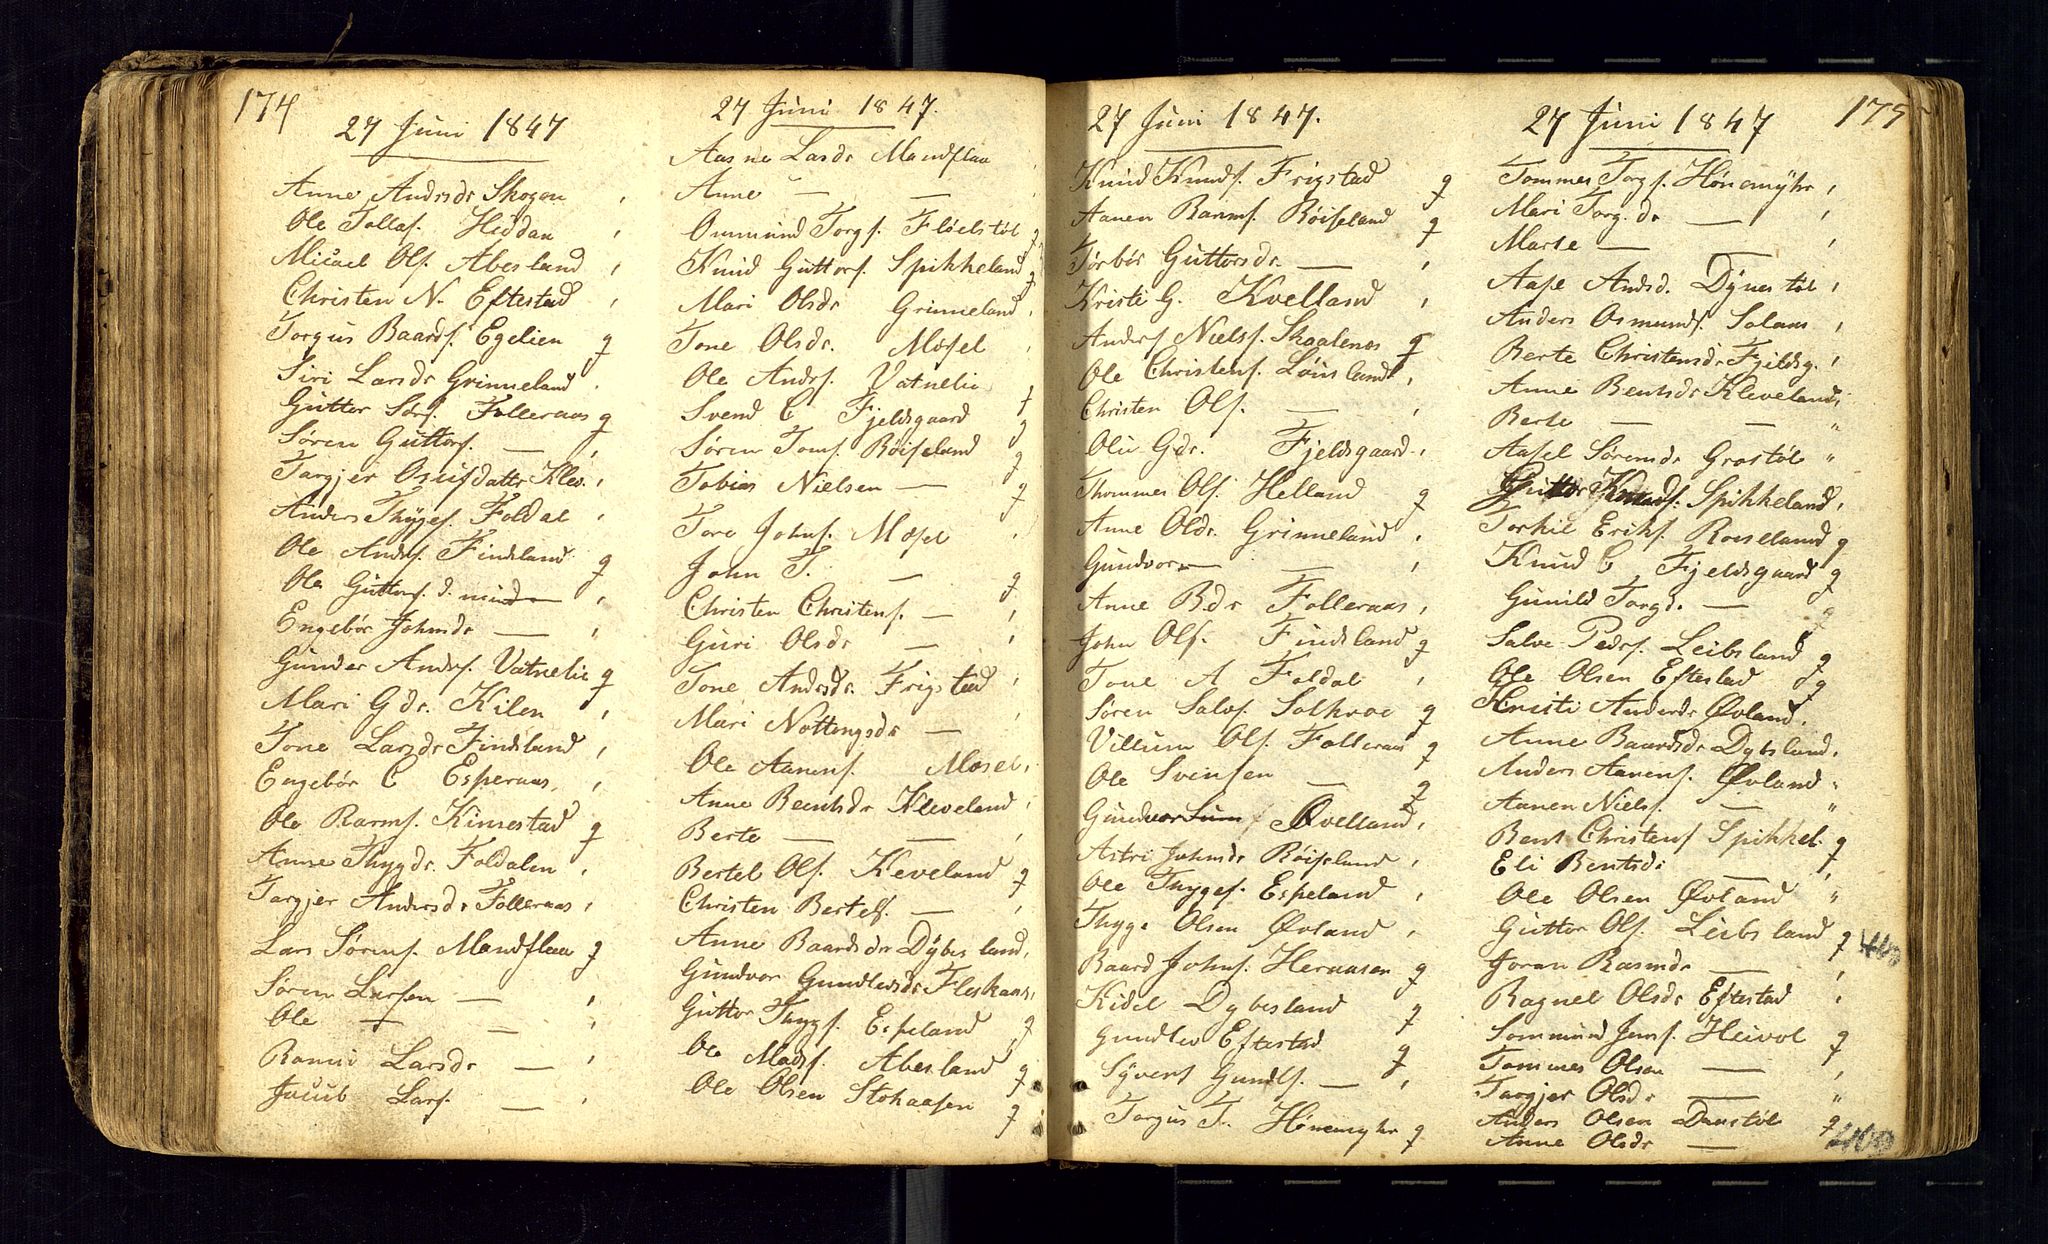 174
27 Juni 1847
Anne Andrsdr Skogen ,
Ole Tollas. Heddan ,
Micael Ols. Abesland ,
Christen N. Eftestad ,
Torgus Baards. Egelien g
Siri Larsdr Grinneland .
Guttor Sørs. Folleraas g
Søren Guttors. — ,
Targjer Osufdatter Klev. ,
Anders Thyges. Foldal ,
Ole Andrs. Findsland g
Ole Guttors. d. ,
Engebør Johnsdr — ,
Gunder Andrs. Vatnelie g
Mari Gdr. Kilen ,
Tone Larsdr Findsland ,
Engebør C Esperaas ,
Ole Rasms. Kinnestad g
Anne Thygdr. Foldalen ,
Targjer Andersdr Folleraas ,
Lars Sørens. Mandflaa g
Søren Larsen — ,
Ole — — ,
Larsdr — ,
Jacub Lars. — ,
27 Juni 1847.
Aasne Larsdr Mandflaa ,
Anne — — ,
Ommund Torgs. Fløelstøl g
Knud Guttors. Spikkeland g
Mari Olsdr Grinneland ,
Tone Olsdr. Mosel ,
Ole Andrs. Vatnelie g
Svend C Fjeldsgaard g
Søren Toms. Røiseland g
Tobias Nielsen — g
Tore Johns. Mosel ,
John T. — g
Christen Christens. — ,
Guri Olsdr — ,
Tone Andrsdr. Frigstad ,
Mari Nottengsdr — ,
Ole Aanens. Mosel ,
Anne Bentsdr Kleveland ,
Berte — — ,
Bertel Ols. Keveland g
Christen Bertels. — ,
Anne Baardsdr Dybesland ,
Gundvor Gundlevsdr Fleskaas ,
Guttor Thygs. Espeland g
Ole Mads. Abesland g
Ole Olsen Stokaasen g
27 Juni 1847.
Knud Knuds. Frigstad g
Aanen Rasms. Røiseland g
Torbør Guttorsdr. — ,
Kristi G. Kvelland ,
Anders Niels. Skaalenes g
Ole Christens. Løinsland ,
Christen Ols. — ,
Oliv Gdr. Fjeldsgaard ,
Thommes Ols. Helland g
Anne Olsdr. Grinneland ,
Gundvor — — ,
Anne B.dr Folleraas ,
John Ols. Findsland g
Tone A Foldal ,
Søren Salvs. Solkroe g
Villum Ols. Folleraas g
Ole Svensen — g
Gundvor Øvelland ,
Astri Johnsdr Røiseland ,
Ole Thyges. Espeland ,
Thyge Olsen Øvland ,
Baard Johns. Heraasen g
Kidel Dybesland g
Gundlev Eftestad g
Syvert Gundls. — ,
Torgus T. Hønemyhr g
27 Juni 1847
175
Tommes Torgs. Hønemyhr ,
Mari Torg.dr — ,
Marte — — ,
Aase Andsd. Dynestøl ,
Anders Osmunds. Solaas ,
Berte Christensdr Fjeldsg. ,
Anne Bentsdr Kleveland ,
Berte — — "
Aasel Sørensdr Grostøl "
Guttor Knuds. Spikkeland ,
Torkil Eriks. Roiseland g
Knud C Fjeldsgaard g
Gunild Torgdr — g
Salve Peders. Leibsland g
Ole Olsen Eftestad g
Kristi Andersdr Øvland ,
Anne Baardsdr Dybsland ,
Anders Aanens. Øvland "
Aanen Niels. — "
Bent Christens Spikkel. g
Eli Bentsdr — ,
Ole Olsen Øvland "
Guttor Ols. Leibsland g
Joran Rasmdr — ,
Ragnel Olsdr Eftestad ,
Sommund Jens. Heivol g
Tommes Olsen — ,
Targjer Olsdr — "
Anders Olsen Dunstøl g
Anne Olsdr —